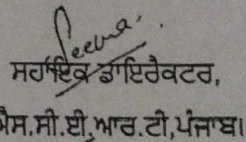 Seema
ਸਹਾਇਕ ਡਾਇਰੈਕਟਰ,
ਐਸ.ਸੀ.ਈ.ਆਰ.ਟੀ,ਪੰਜਾਬ।